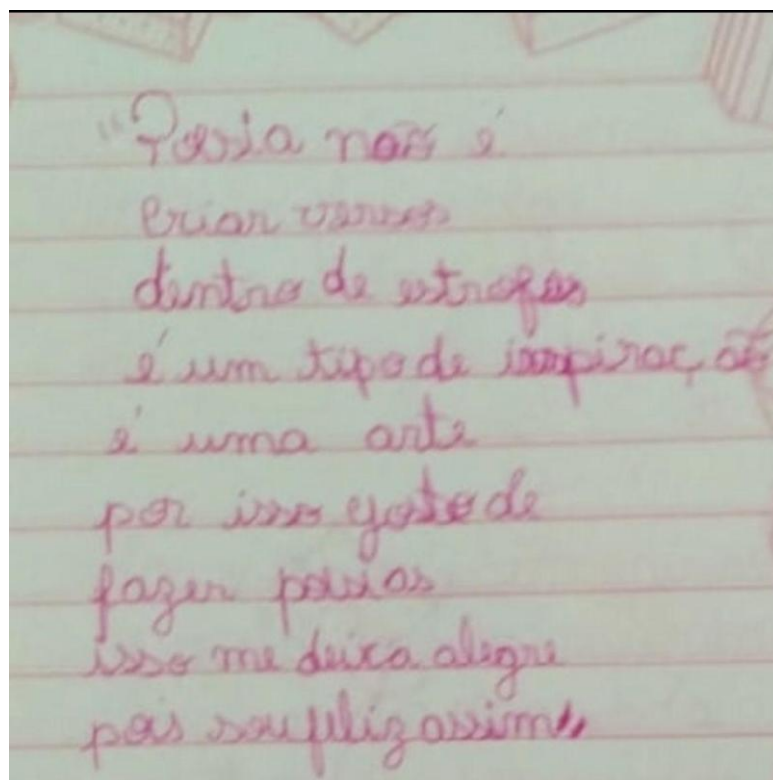 "Poesia não é
criar versos
dentro de estrofes
é um tipo de inspiração
é uma arte
por isso gosto de
fazer poesias
isso me deixa alegre
pois sou feliz assim"